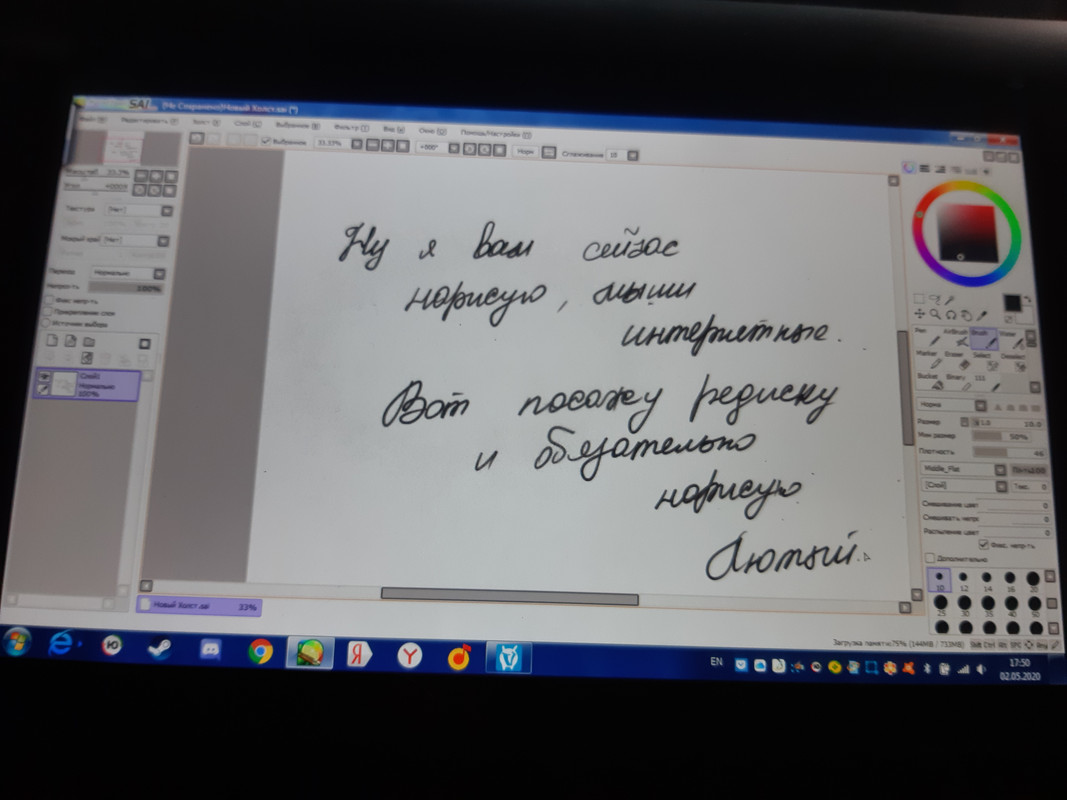 SAI
(Не Сохранено)Новый Холст.sai (*)
Файл Редактировать Холст Слой Выбранное Фильтр Вид Окно Помощь/Настройки
Выбранное 33.33% +000° Норм Сглаживание 15
Масштаб 33.3%
Угол +000°
Текстура [Нет]
Мокрый край [Нет]
Перелож Нормально
Непрозр-ть 100%
Фикс непр-ть
Прикрепление слоя
Источник выбора
Слой1
Нормально
100%
Ну я вам сейчас
нарисую, мыши
интернетные.
Вот посажу редиску
и обязательно
нарисую
Лютый.
Pen AirBrush Brush Water
Marker Eraser Select Deselect
Bucket Binary 111
Норма
Размер x 1.0 10.0
Мин размер 50%
Плотность 46
Middle_Flat
[Слой]
Смешивание цвет 0
Смешивать непр 0
Распыление цвет 0
Фикс. непр-ть
Дополнительно
10 12 14 16 20
25 30 35 40 50
Новый Холст.sai 33%
Загрузка памяти:75% (144MB / 733MB) Shift Ctrl Alt SPC Any
EN
17:50
02.05.2020